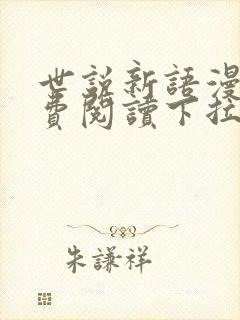 世説新語漫
費閱讀下拉
朱謙祥